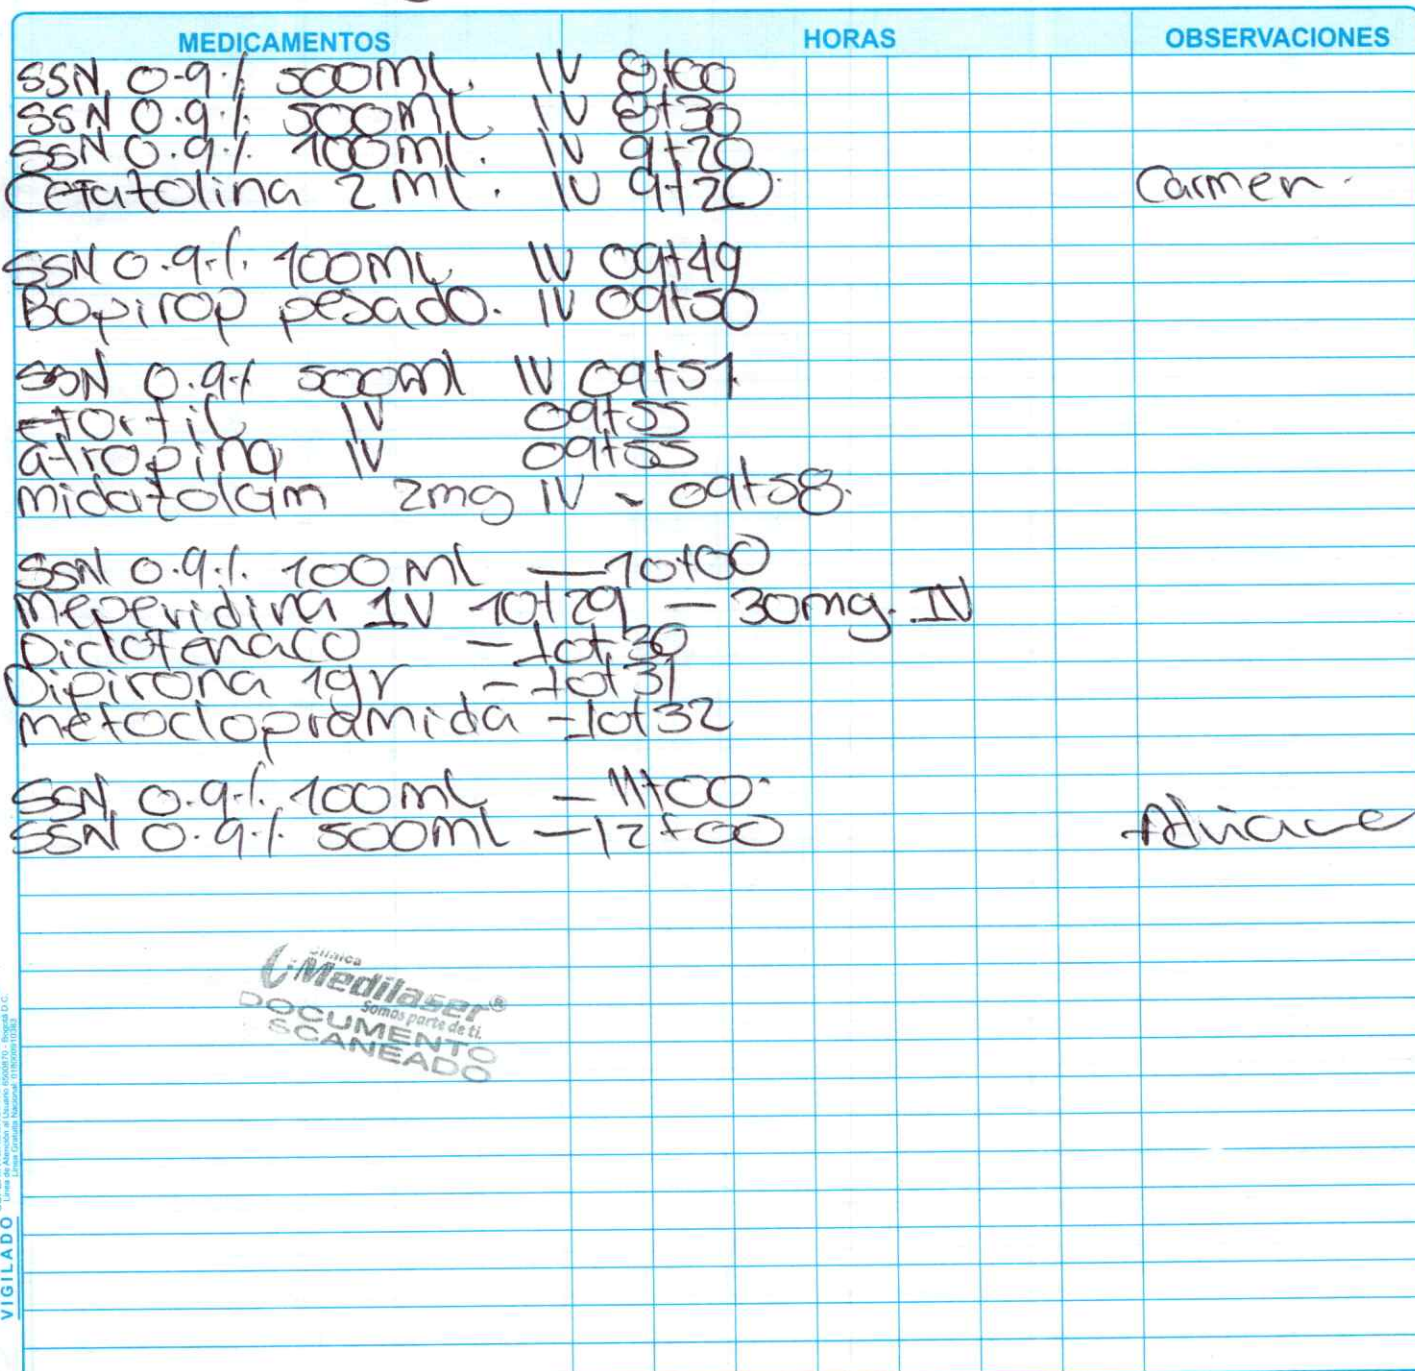 MEDICAMENTOS HORAS OBSERVACIONES
SSN 0.9% 500ml. IV 8+00
SSN 0.9% 500ml IV 8+30
SSN 0.9% 100ml. IV 9+20
Cefazolina 2 ml. IV 9+20. Carmen.
SSN 0.9% 100ml IV 09+49
Bopirop pesado. IV 09+50
SSN 0.9% 500ml IV 09+51
Etorfil IV 09+55
atropina IV 09+55
midazolam 2mg IV - 09+58.
SSN 0.9% 100 ml — 10+00
meperidina IV 10+29 — 30mg. IV
Diclofenaco - 10+30
Dipirona 1gr - 10+31
metoclopramida - 10+32
SSN 0.9% 100ml - 11+00.
SSN 0.9% 500ml - 12+00
Clínica
Medilaser®
Somos parte de ti.
DOCUMENTO
SCANEADO
VIGILADO
Línea de Atención al Usuario 6500870 - Bogotá D.C.